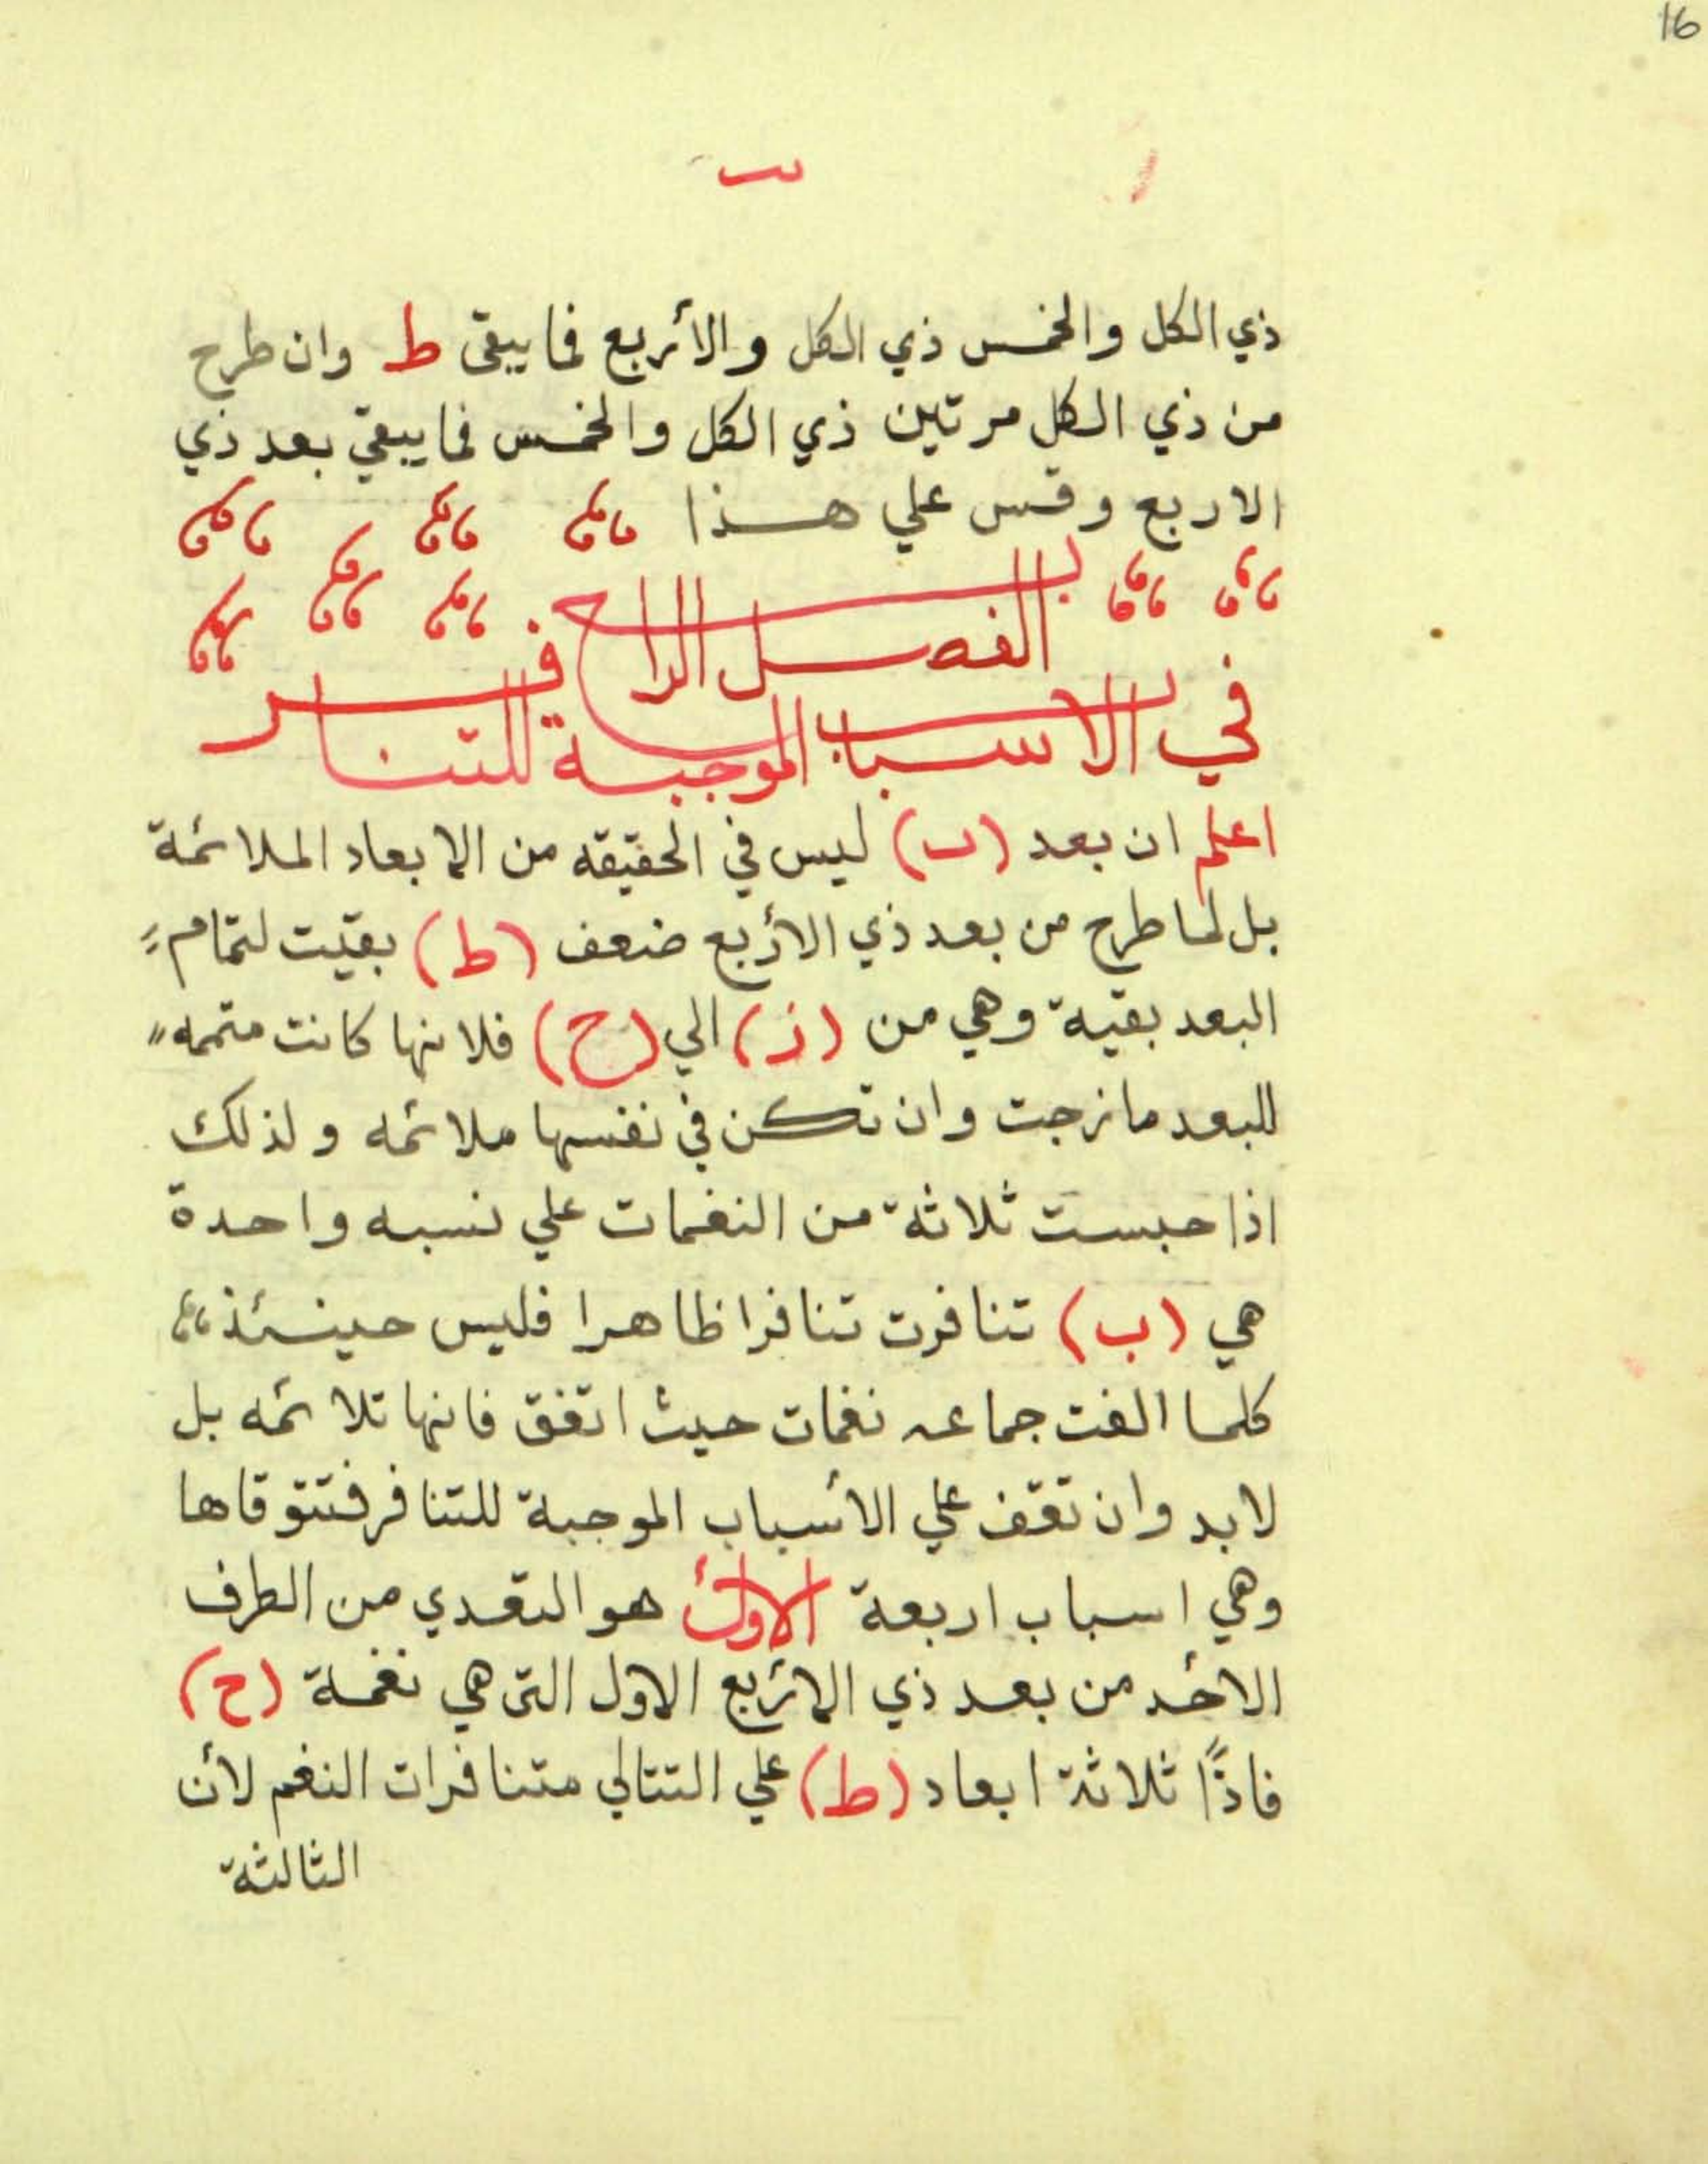 16
ذي الكل والخمس ذي الكل والأربع فما يبقى ط وان طرح
من ذي الكل مرتين ذي الكل والخمس فما يبقي بعد ذي
الاربع وقس علي هذا
الفصل الرابع
في الاسباب الموجبة للتنافر
اعلم ان بعد (ب) ليس في الحقيقه من الابعاد الملائمة
بل لما طرح من بعد ذي الأربع ضعف (ط) بقيت لتمام
البعد بقية وهي من (ز) الي (ح) فلانها كانت متممه
للبعد مازجت وان تكن في نفسها ملائمه ولذلك
اذا حبست ثلاثة من النغمات علي نسبه واحدة
هي (ب) تنافرت تنافرا ظاهرا فليس حينئذ
كلما الفت جماعه نغمات حيث اتفق فانها تلائمه بل
لابد وان تقف علي الأسباب الموجبة للتنافر فتتوقاها
وهي اسباب اربعة الأول هو التعدي من الطرف
الأحد من بعد ذي الأربع الاول التى هي نغمة (ح)
فاذًا ثلاثة ابعاد (ط) علي التتالي متنافرات النغم لأن
الثالثة